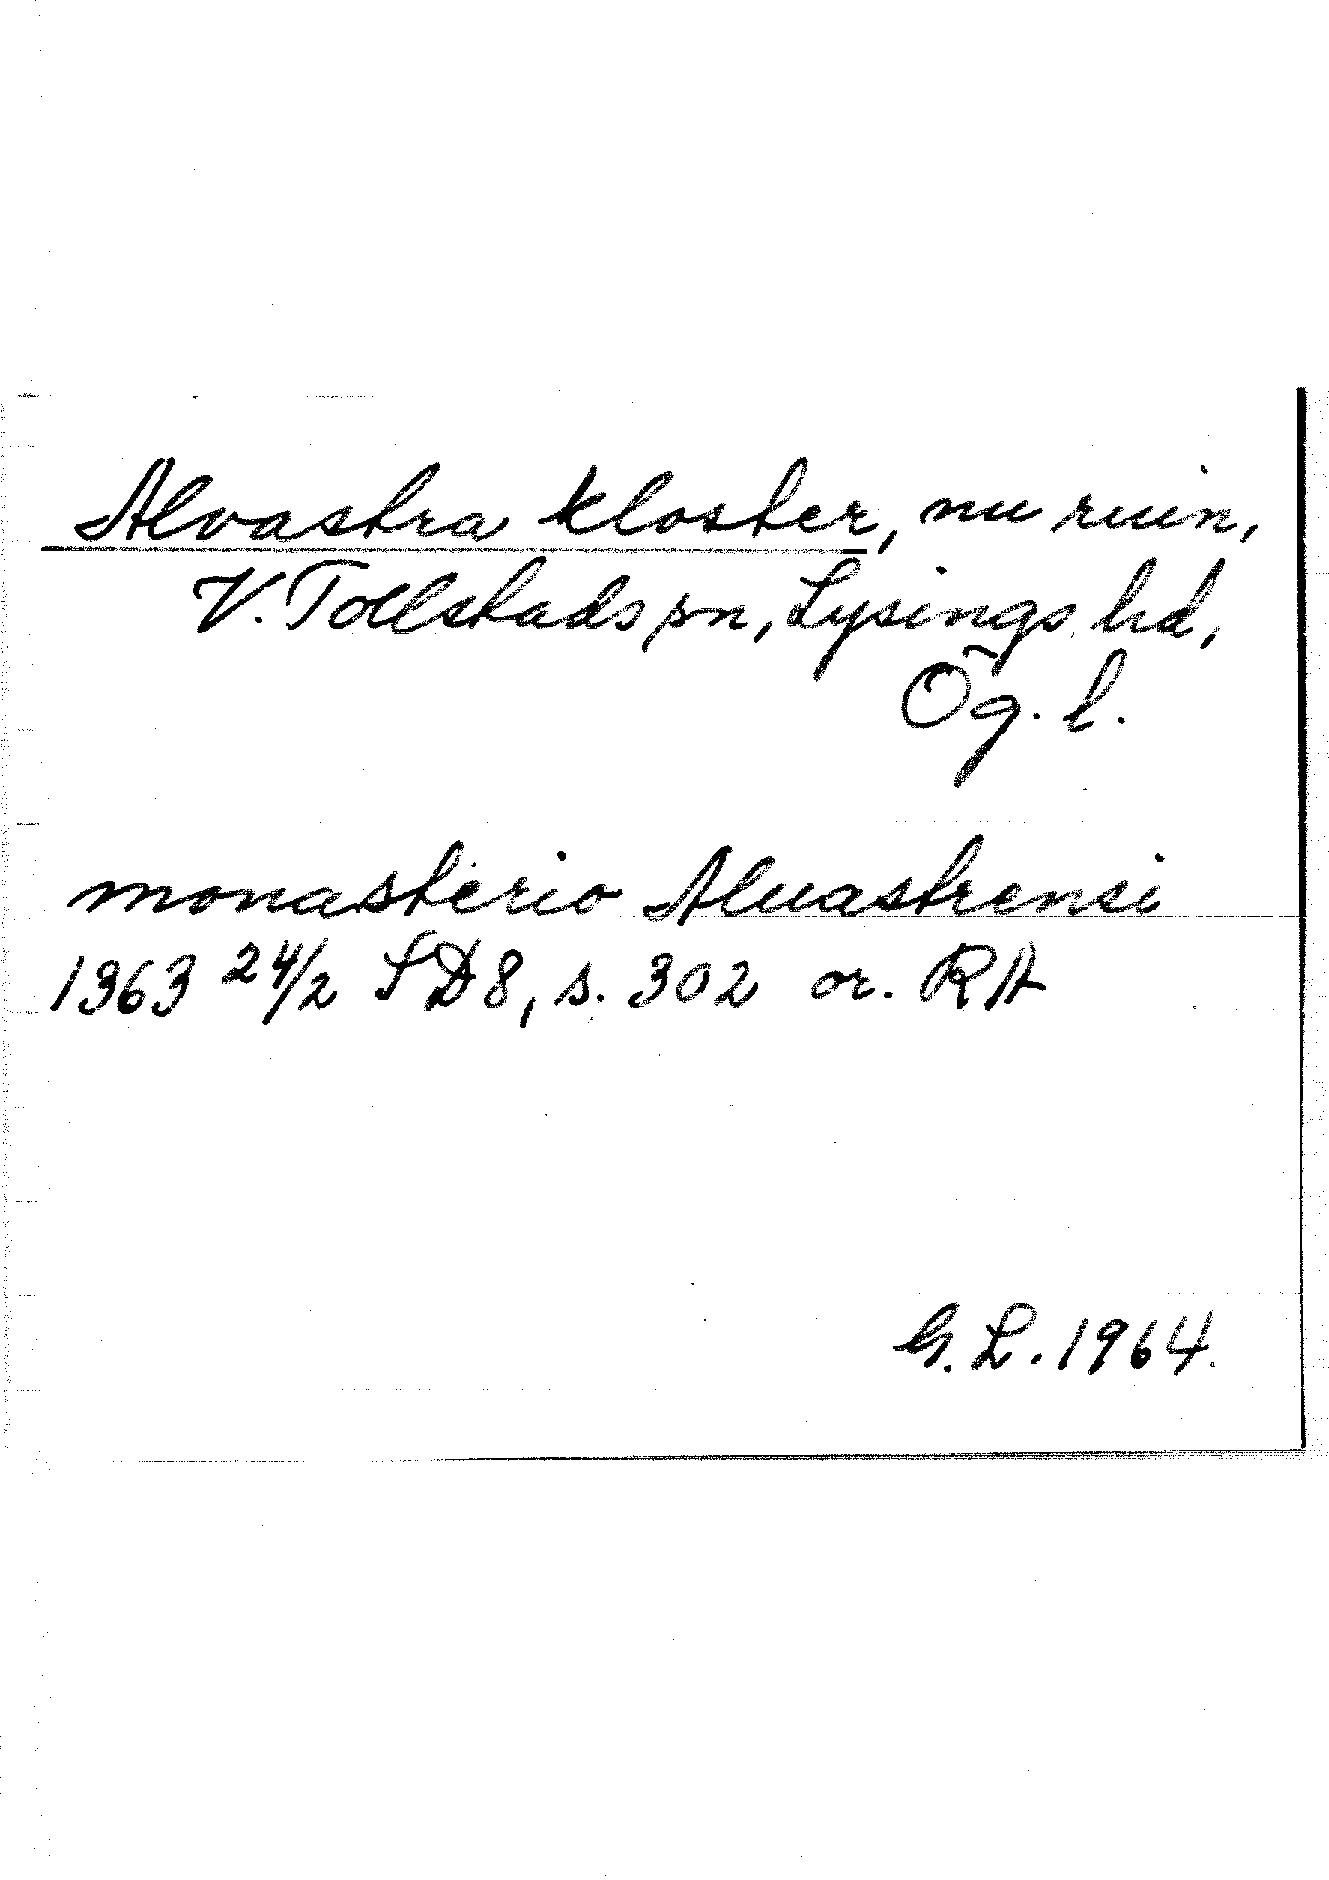 Alvastra kloster, nu ruin,
V. Tollstads sn, Lysings hd,
Ög. l.
monasterio Aluastrensi
1363 24/2 SD8, s. 302 or. RA
G. L. 1964.